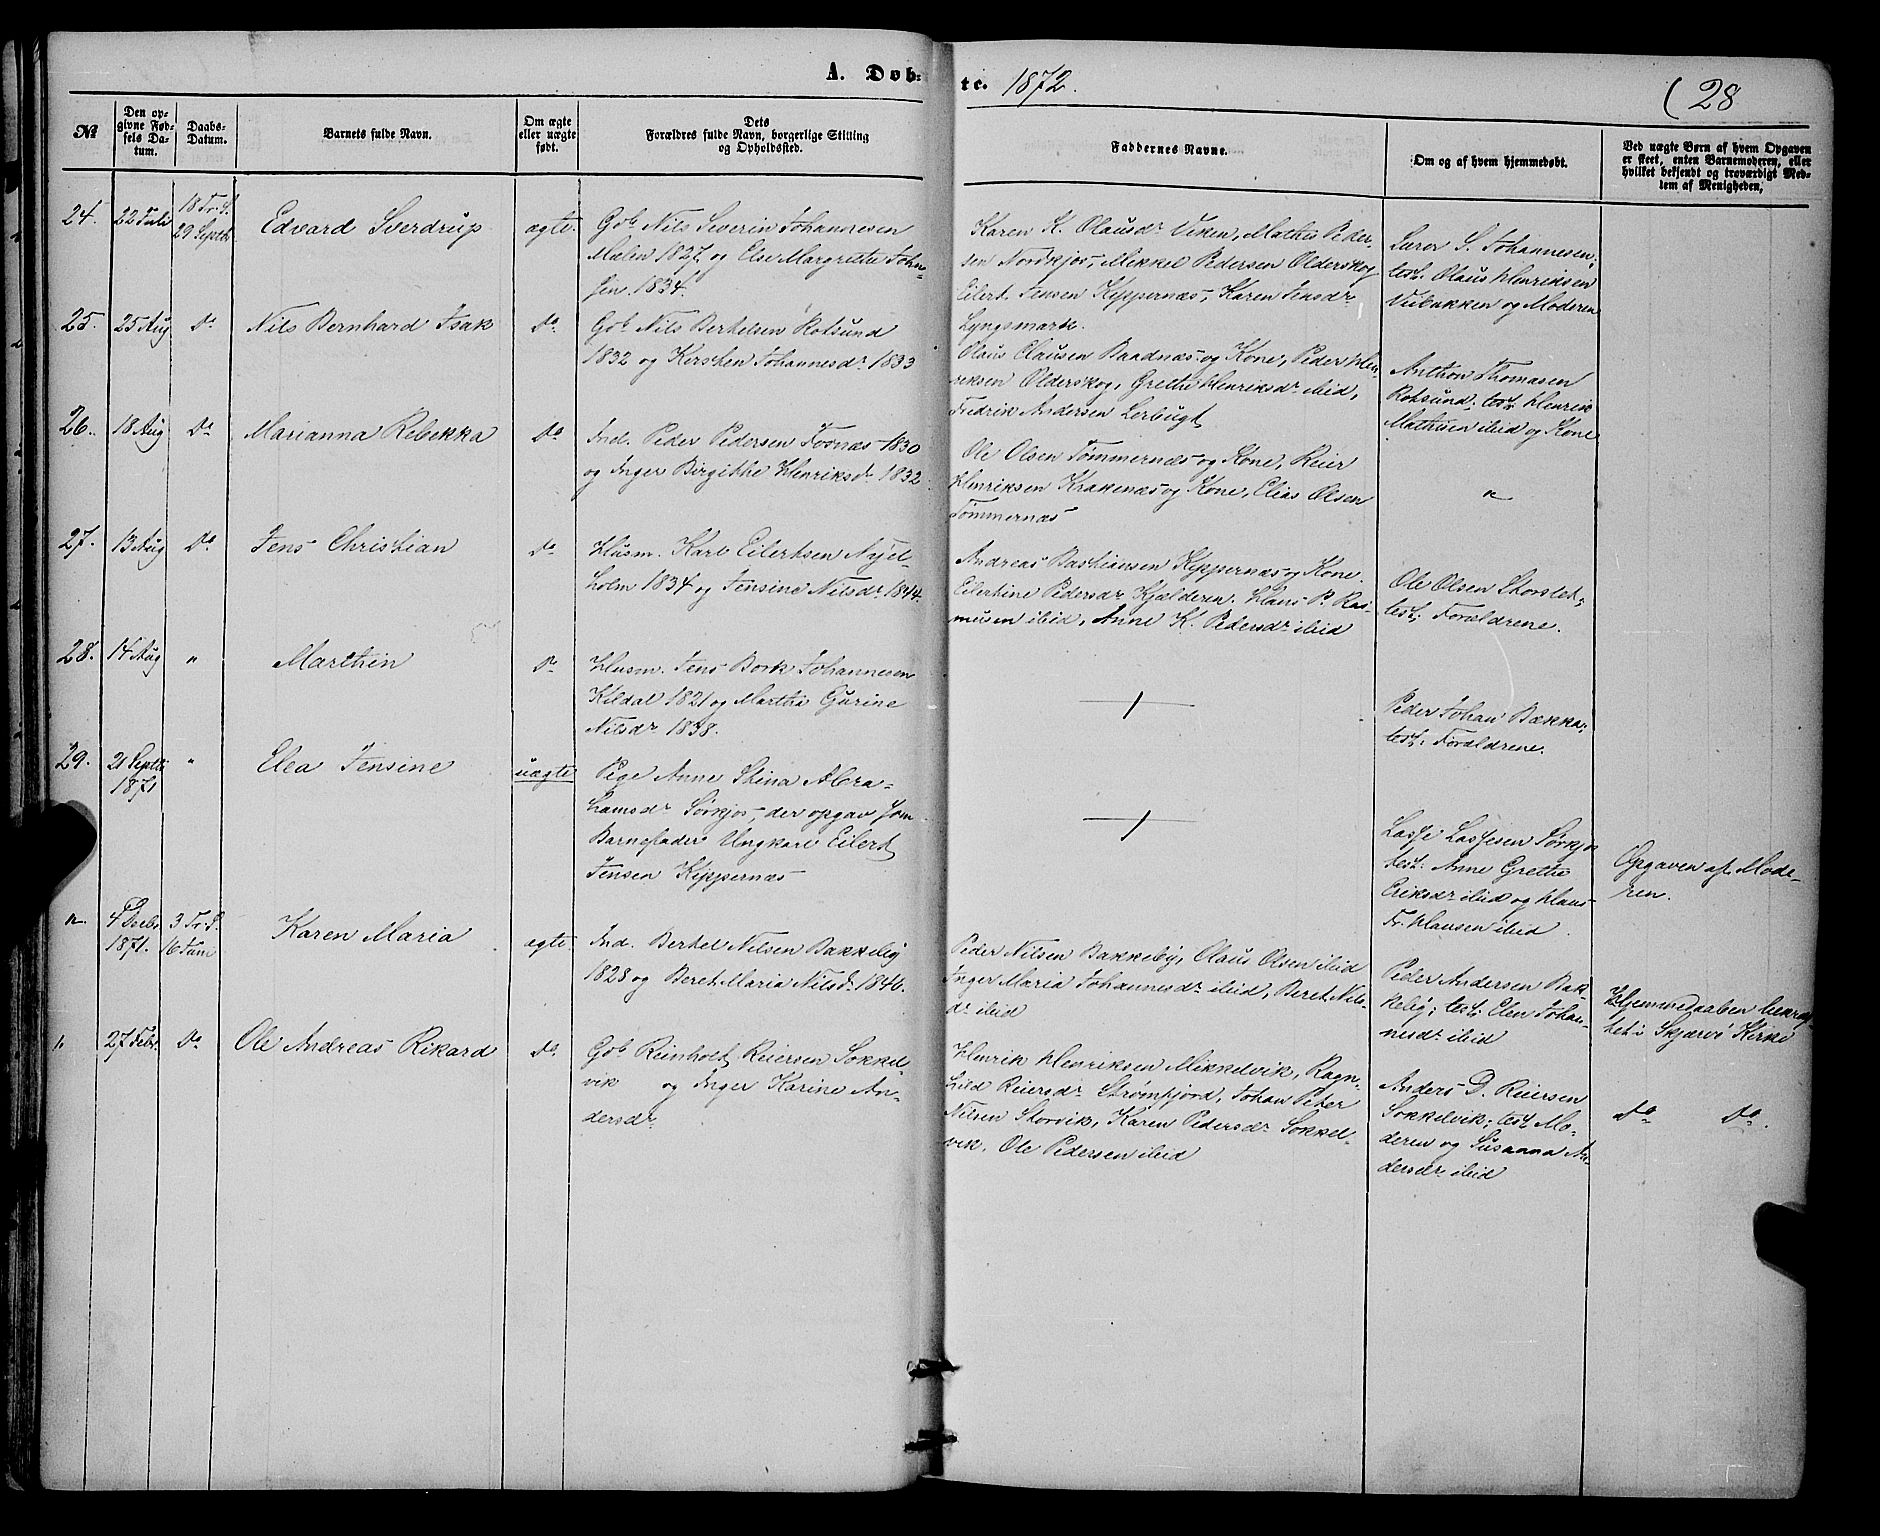 A. Døb-
te. 1872.
(28
№
Den op-
givne Fød-
sels Da-
tum.
Daabs-
Datum.
Barnets fulde Navn.
Om ægte
eller uægte
født.
Dets
Forældres fulde Navn, borgerlige Stilling
og Opholdssted.
Faddernes Navne.
Om og af hvem hjemmedøbt.
Ved uægte Børn af hvem Opgaven
er skeet, enten Barnemoderen, eller
hvilket bekjendt og troværdigt Med-
lem af Menigheden,
24.
22 Juli
18 Tr. S.
29 Septbr
Edvard Sverdrup
ægte
Gdb Nils Severin Johannesen
Malen 1827 og Else Margrethe John-
sen 1834.
Karen K. Olausdr Viken, Mathis Peder-
sen Nordkjos, Mikkel Pedersen Olderskog
Eilert Jensen Kippernæs, Karen Jensdr
Lyngsmark.
S. Johannesen;
test. Olaus Henriksen
og Moderen
25.
25 Aug
do
Nils Bernhard Isak
do
Gdb Nils Berthelsen Rotsund
1832 og Kirsten Johannesdr 1833
Olaus Olausen Baadnæs og Kone, Peder Hen-
riksen Olderskog, Grethe Henriksdr ibid,
Fredrik Andersen Lerbugt
Anthon Thomasen
Rotsund; test. Henrik
Mathisen ibid og Kone
26.
18 Aug
do
Marianna Rebekka
do
Ind. Peder Pedersen Fosnæs 1830
og Inger Birgitthe Henriksdr 1832
Ole Olsen Tømmernæs og Kone, Reier
Henriksen Krakenæs og Kone, Elias Olsen
Tømmernæs
"
27.
13 Aug
do
Jens Christian
do
Husm. Karl Eilertsen Nyjel-
holm 1834 og Jensine Nilsdr 1844.
Andreas Bastiansen Kippernæs og Kone.
Eilertine Pedersdr Kjælderen. Hans P. Ras-
musen ibid, Anne K. Pedersdr ibid
Ole Olsen Storslet;
test; Forældrene.
28.
14 Aug
"
Marthin
do
Husm. Jens Bork Johannesen
Kildal 1821 og Martha Gurine
Nilsdr 1838.
Peder Johan Bækka;
test; Forældrene.
29.
21 Septbr
1871
"
Elea Jensine
uægte
Pige Anne Stina Abra-
hamsdr Sørkjos, der opgav som
Barnefader Ungkarl Eilert
Jensen Kippernæs
Lasse Lassesen Sørkjos
test: Anne Grethe
Eriksdr ibid og Hans
Fr. Hansen ibid
Opgaven af Mode-
ren.
"
4 Decbr
1871.
3 Tr. S.
16 Juni
Karen Maria
ægte
Ind. Berthel Nilsen Bakkeby
1828 og Beret Maria Nilsdr 1846.
Peder Nilsen Bakkeby, Olaus Olsen ibid
Inger Maria Johannesdr ibid, Beret Nils-
dr ibid
Peder Andersen Bak-
keby; test; Elen Johan-
nesdr ibid
Hjemmedaaben
het i Skjærvø Kirke
"
27 Febr.
do
Ole Andreas Rikard
do
Gdb Reinholt Reiersen Sokkel-
vik og Inger Karine An-
dersdr
Henrik Henriksen Mikkelvik, Ragn-
hild Reiersdr Strømfjord, Johan Peter
Nilsen Storvik, Karen Pedersdr Sokkel-
vik. Ole Pedersen ibid
Anders D. Reiersen
Sokkelvik; test Mo-
deren og Susanna An-
dersdr ibid
do do.